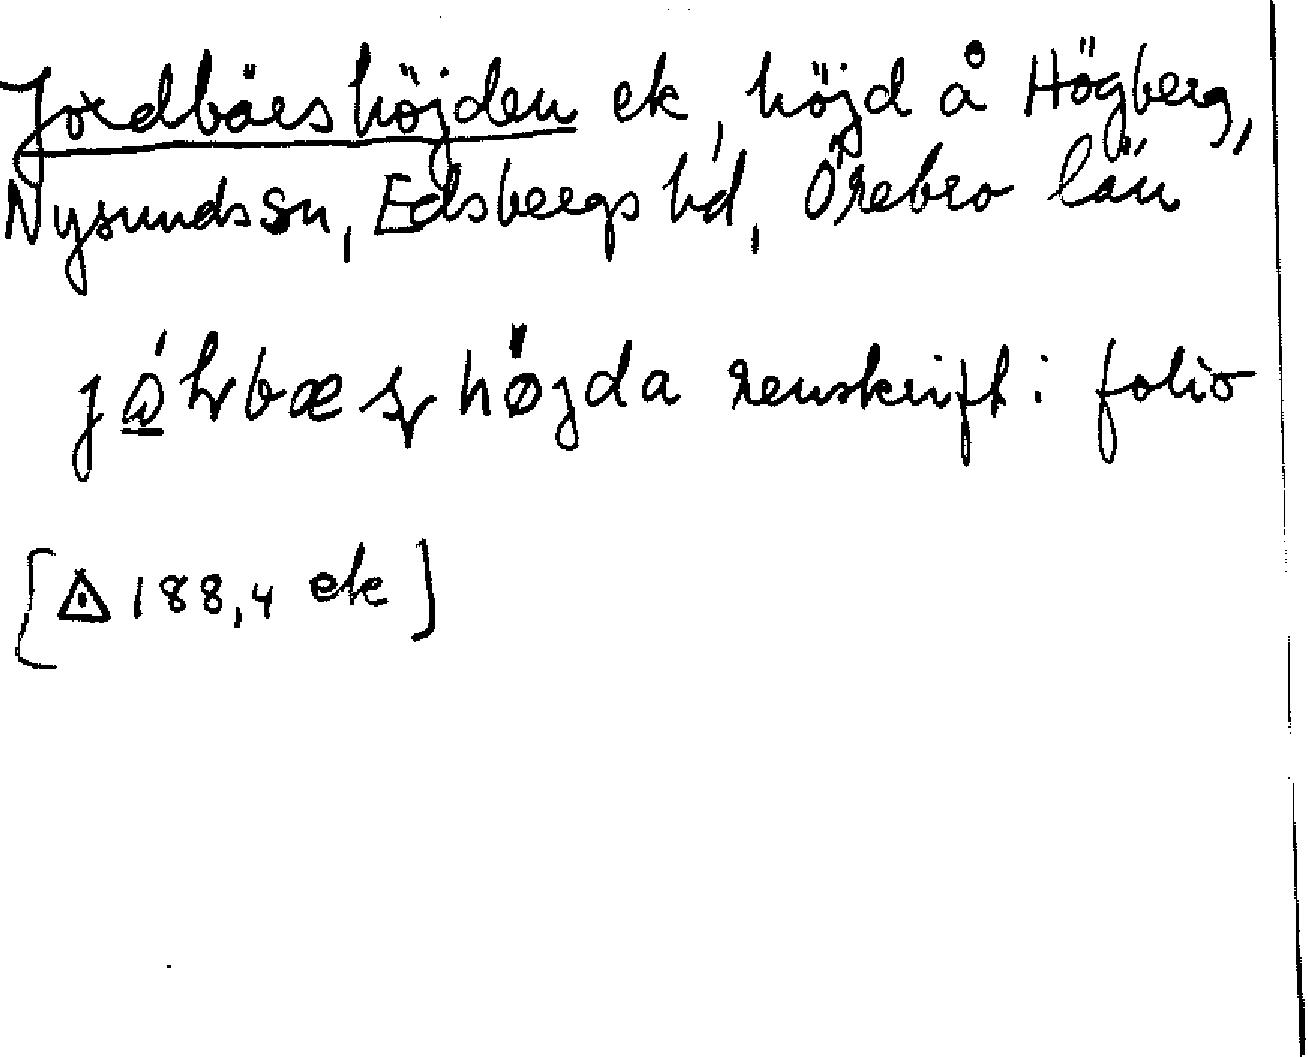 Jordbärshöjden ek, höjd å Högberg,
Nysundssn, Edsbergs hd, Örebro län
renskrift i folio
[△ 188,4 ek]